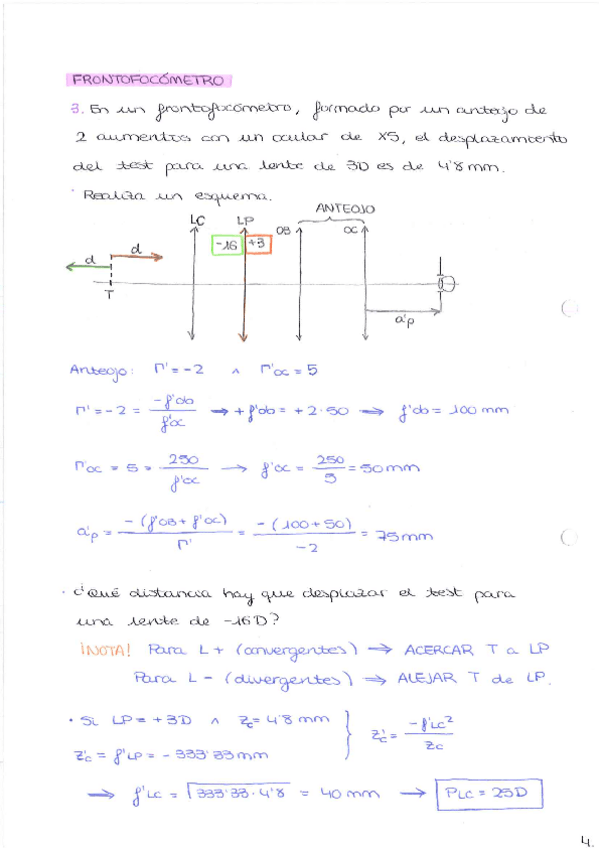 FRONTOFOCÓMETRO
3. En un frontofocómetro, formado por un anteojo de
2 aumentos con un ocular de x5, el desplazamiento
del test para una lente de 3D es de 4'8 mm.
· Realiza un esquema.
ANTEOJO
LC LP OB OC
-16 +3
d d
T
a'p
Anteojo: Γ' = -2 ∧ Γ'oc = 5
Γ' = -2 = -f'ob / f'oc → + f'ob = + 2·50 → f'ob = 100 mm
Γ'oc = 5 = 250 / f'oc → f'oc = 250 / 5 = 50 mm
a'p = -(f'OB + f'OC) / Γ' = -(100 + 50) / -2 = 75 mm
· ¿Qué distancia hay que desplazar el test para
una lente de -16D?
¡NOTA! Para L + (convergentes) → ACERCAR T a LP
Para L - (divergentes) → ALEJAR T de LP.
· Si LP = +3D ∧ Zc = 4'8 mm
Z'c = -f'LC² / Zc
Z'c = f'LP = - 333'33 mm
→ f'LC = √333'33 · 4'8 = 40 mm → PLC = 25D
4.